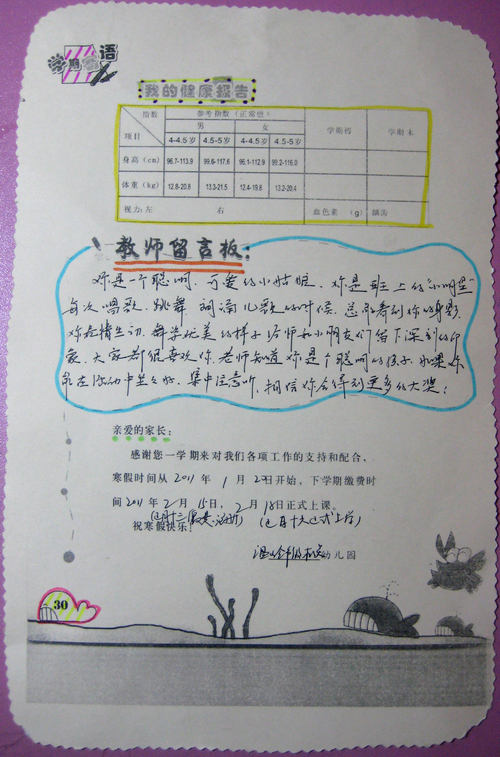 学期寄语
我的健康报告
指数 参考指数（正常值） 学期初 学期末
项目 男 女
4-4.5岁 4.5-5岁 4-4.5岁 4.5-5岁
身高(cm) 96.7-113.9 99.6-117.6 96.1-112.9 99.2-116.0
体重(kg) 12.8-20.8 13.3-21.5 12.4-19.8 13.2-20.4
视力:左 右 血色素 (g) 龋齿
教师留言板:
你是一个聪明、可爱的小姑娘，你是班上的“小明星”
每次唱歌、跳舞、朗诵儿歌的时候，总能看到你的身影
你表情生动、舞姿优美的样子给老师和小朋友们留下深刻的印
象。大家都很喜欢你。老师知道你是个聪明的孩子，如果你
能在活动中坐好，集中注意听，相信你会得到更多的大奖！
亲爱的家长:
感谢您一学期来对我们各项工作的支持和配合。
寒假时间从2011年1月22日开始。下学期缴费时
间2011年2月15日，2月18日正式上课。
(正月十三 (正月十六正式上学)
祝寒假快乐!
幼儿园
30